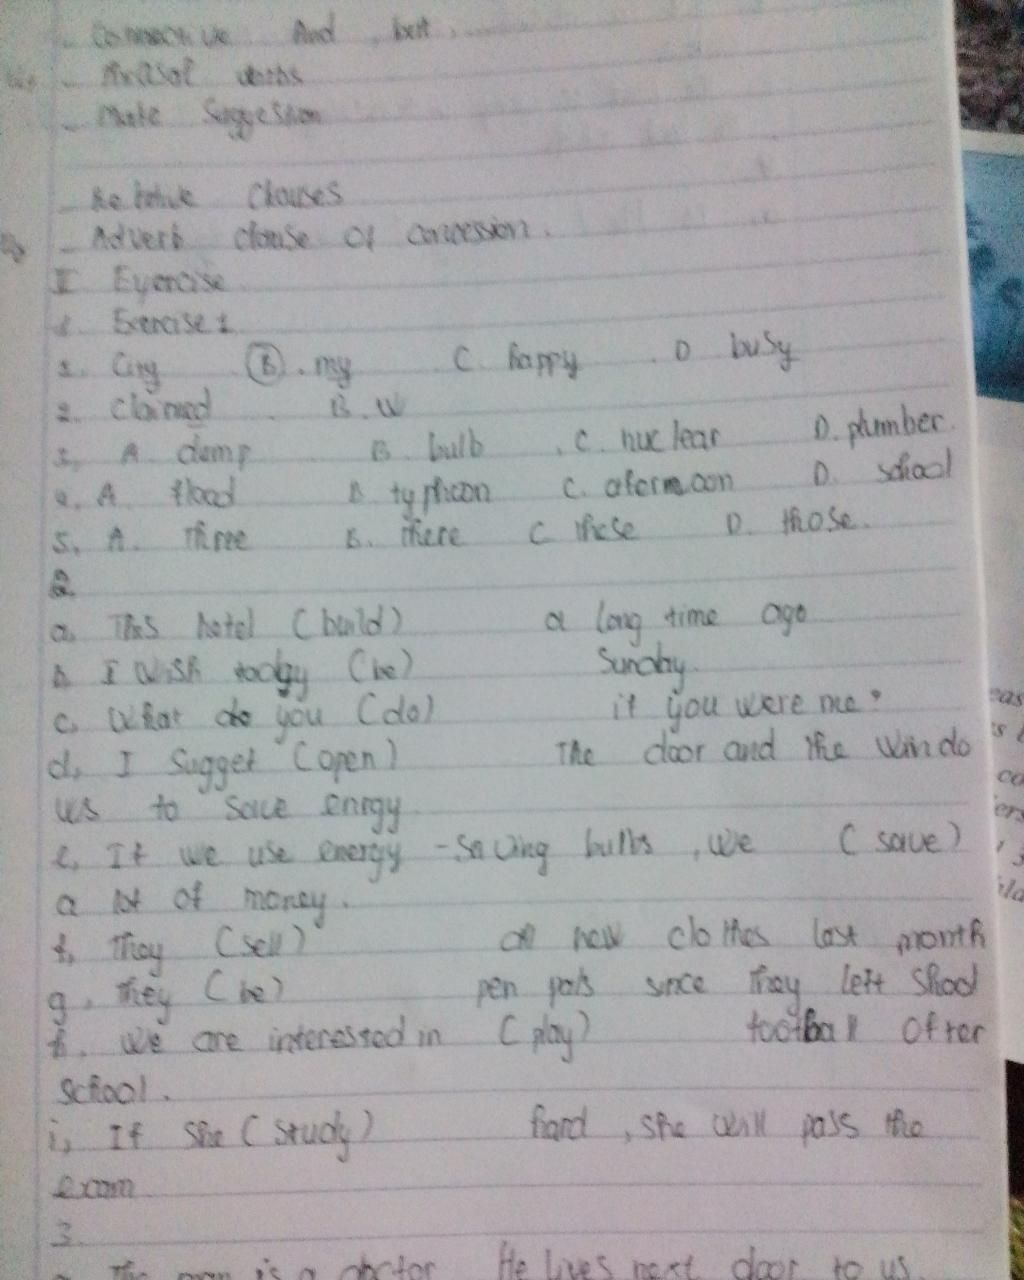 - Connective And, but,
- Phrasal verbs
- Make Suggestion
- Relative Clauses
- Adverb clause of concession.
II Exercise
1. Exercise 1
1. City B. my C. happy D busy
2. Claimed B. W
3, A. dump B. bulb , C. nuclear D. plumber.
4, A. flood B. typhoon C. afternoon D. school
5, A. Three B. there C. these D. those.
2.
a, This hotel (build) a long time ago
b. I wish today (be) Sunday.
c, What do you (do) if you were me?
d, I Sugget (open) The door and the windo
ws to save enrgy
e, If we use energy -saving bulbs, we (save)
a lot of money.
f, They (sell) all new clothes last month
g, They (be) pen pals since they left Shool
h. We are interested in (play) football after
school.
i, If She (study) hard, she will pass the
exam
3.
The man is a doctor He lives next door to us